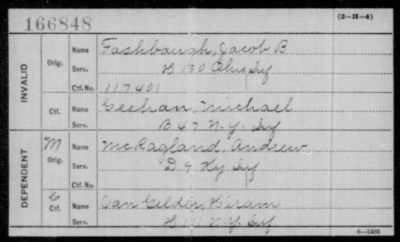 166848
(3-H-4)
INVALID
Orig.
Name Fashbaugh, Jacob B
Serv. H 130 Ohio Inf
Ctf. No. 117401
Ctf.
Name Geehan, Michael
Serv. B 47 N.Y. Inf
DEPENDENT
M
Orig.
Name McRagland, Andrew
Serv. D 9 Ky Inf
C
Ctf.
Name Van Gelder, Hiram
Serv. N.Y. Inf